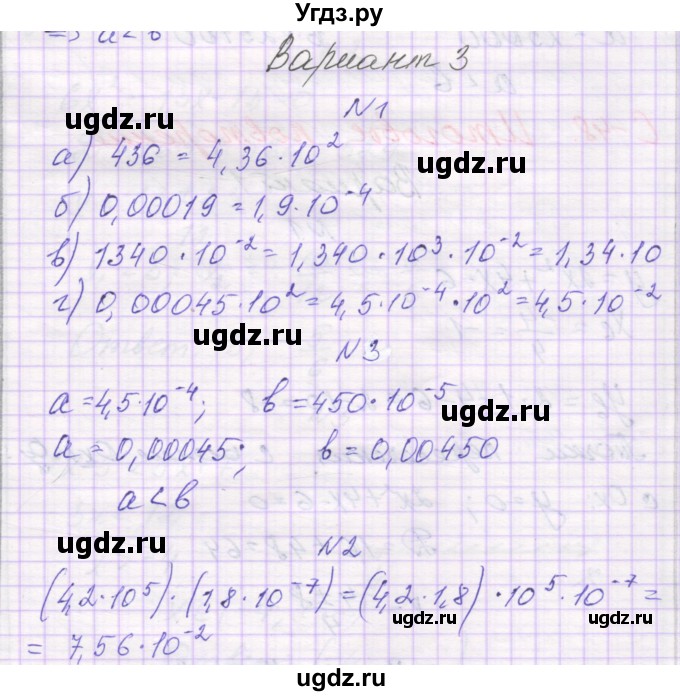 Угдз.ру
=> a < b
Вариант 3
№1
ugdz.ru
а) 436 = 4,36·10²
б) 0,00019 = 1,9·10⁻⁴
в) 1340·10⁻² = 1,340·10³·10⁻² = 1,34·10
г) 0,00045·10² = 4,5·10⁻⁴·10² = 4,5·10⁻²
ugdz.ru
№3
a = 4,5·10⁻⁴; b = 450·10⁻⁵
ugdz.ru
a = 0,00045; b = 0,00450
a < b
ugdz.ru
№2
(4,2·10⁵)·(1,8·10⁻⁷) = (4,2·1,8)·10⁵·10⁻⁷ =
ugdz.ru
= 7,56·10⁻²
ugdz.ru
ugdz.ru